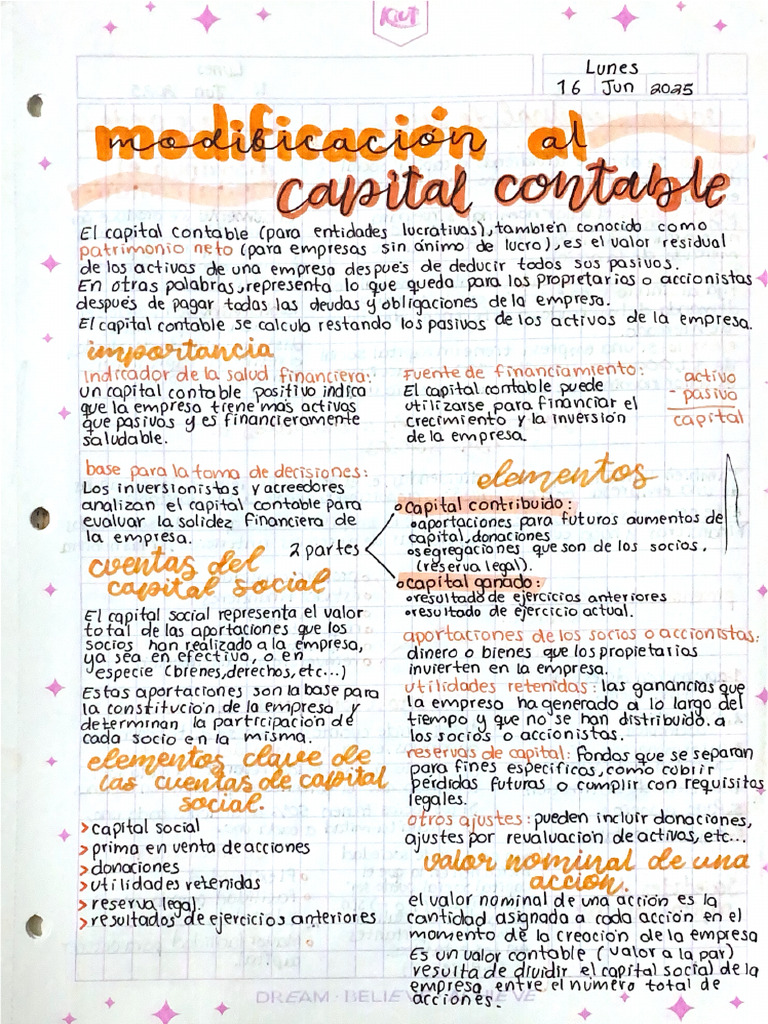 Kiut
Lunes
16 Jun 2025
modificación al
capital contable
El capital contable (para entidades lucrativas), también conocido como
patrimonio neto (para empresas sin ánimo de lucro), es el valor residual
de los activos de una empresa después de deducir todos sus pasivos.
En otras palabras, representa lo que queda para los propietarios o accionistas
después de pagar todas las deudas y obligaciones de la empresa.
El capital contable se calcula restando los pasivos de los activos de la empresa.
importancia
Indicador de la salud financiera:
un capital contable positivo indica
que la empresa tiene más activos
que pasivos y es financieramente
saludable.
Fuente de financiamiento:
El capital contable puede
utilizarse para financiar el
crecimiento y la inversión
de la empresa.
activo
- pasivo
capital
base para la toma de decisiones:
Los inversionistas y acreedores
analizan el capital contable para
evaluar la solidez financiera de
la empresa.
elementos
2 partes
capital contribuido:
aportaciones para futuros aumentos de
capital, donaciones
segregaciones que son de los socios.
(reserva legal).
capital ganado:
resultado de ejercicios anteriores
resultado de ejercicio actual.
cuentas del
capital social
El capital social representa el valor
total de las aportaciones que los
socios han realizado a la empresa,
ya sea en efectivo, o en
especie (bienes, derechos, etc...)
Estas aportaciones son la base para
la constitución de la empresa y
determinan la participación de
cada socio en la misma.
elementos clave de
las cuentas de capital
social.
> capital social
> prima en venta de acciones
> donaciones
> utilidades retenidas
> reserva legal.
> resultados de ejercicios anteriores
aportaciones de los socios o accionistas:
dinero o bienes que los propietarias
invierten en la empresa.
utilidades retenidas: las ganancias que
la empresa ha generado a lo largo del
tiempo y que no se han distribuido. a
los socios o accionistas.
reservas de capital: Fondos que se separan
para fines específicos, como cubrir
pérdidas futuras o cumplir con requisitos
legales.
otros ajustes: pueden incluir donaciones,
ajustes por revaluación de activas, etc...
valor nominal de una
acción.
el valor nominal de una acción es la
cantidad asignada a cada acción en el
momento de la creación de la empresa
Es un valor contable (valor a la par)
resulta de dividir el capital social de la
empresa entre el número total de
acciones.
DREAM · BELIEVE